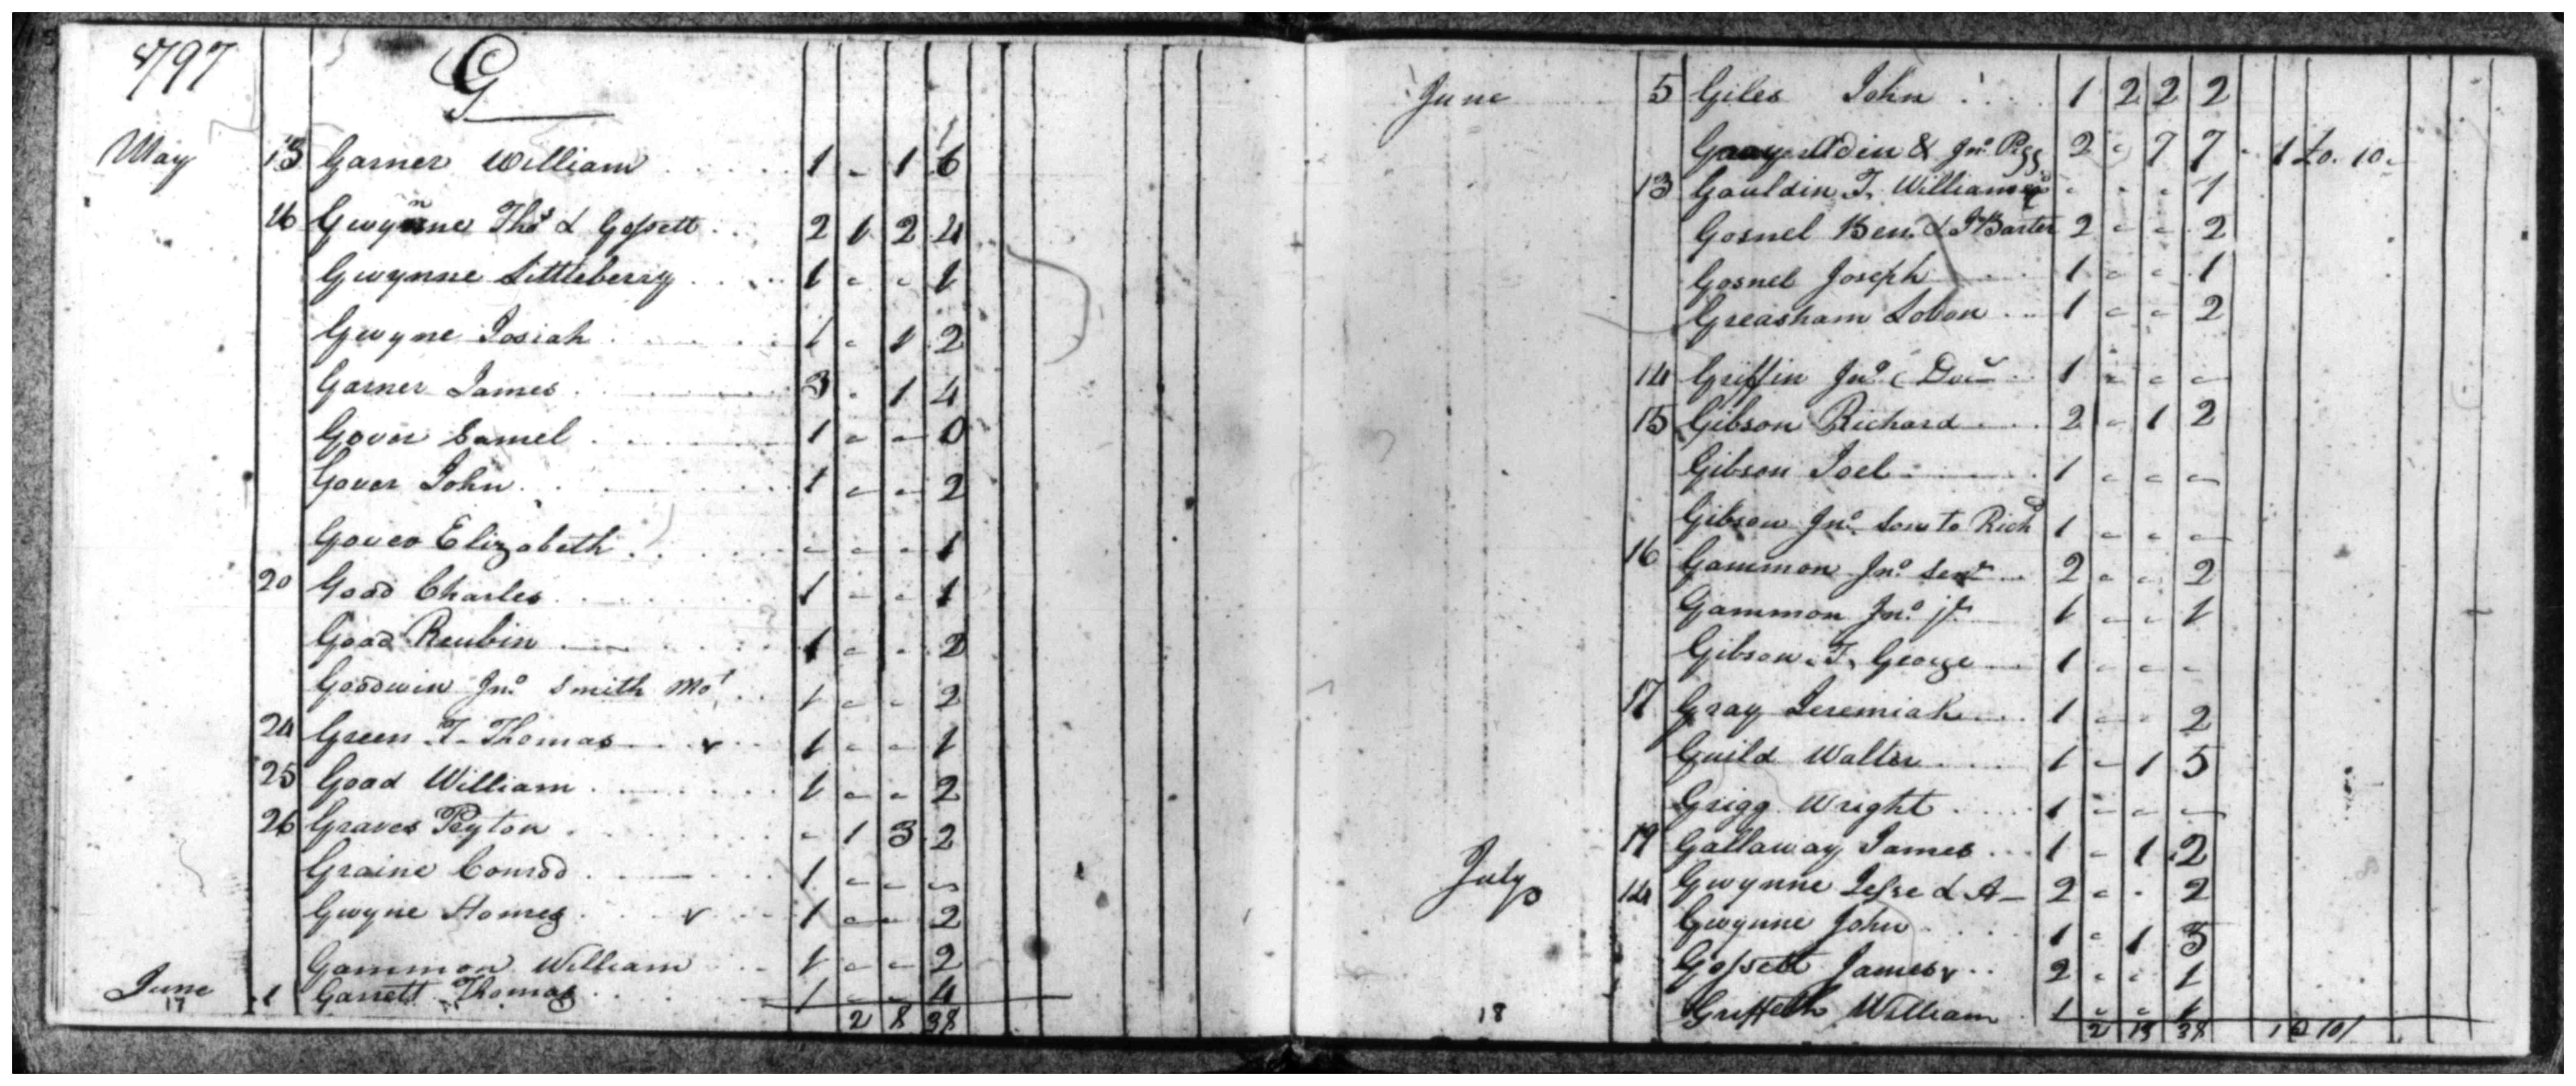 1797 G
May 13 Garner William 1 - 1 6
16 Gwynne Thos & Gossett 2 1 2 4
Gwynne Littleberry 1 - - 1
Gwyne Josiah 1 - 1 2
Garner James 3 - 1 4
Gover Samel 1 - - 0
Gover John 1 - - 2
Gover Elizabeth - - - 1
20 Goad Charles 1 - - 1
Goad Reubin 1 - - 2
Goodwin Jno Smith Mot 1 - - 2
24 Green T. Thomas v 1 - - 1
25 Goad William 1 - - 2
26 Graves Peyton - 1 3 2
Graine Conrod 1 - - -
Gwyne Homes v 1 - - 2
Gammon William 1 - - 2
June 1 Garrett Thomas 1 - - 4
17 2 8 38
June 5 Giles John 1 2 2 2
& Jno Pigg 2 - 7 7 - 1 £0. 10.
13 Gauldin T. William - - - 1
Gosnel Ben. & Barter 2 - - 2
Gosnel Joseph 1 - - 1
Greasham Loban 1 - - 2
14 Griffin Jno 1 - - -
15 Gibson Richard 2 - 1 2
Gibson Joel 1 - - -
Gibson Jno Son to Richd 1 - - -
16 Gammon Jno Senr 2 - - 2
Gammon Jno jr 1 - - 1
Gibson. T. George 1 - - -
17 Gray Jeremiah 1 - - 2
Guild Walter 1 - 1 5
Grigg Wright 1 - - -
19 Gallaway James 1 - 1 2
July 14 Gwynne Jesse & A- 2 - - 2
Gwynne John 1 - 1 3
Gossett James v 2 - - 1
Griffeth William 1 - - 1
18 2 13 38 10/